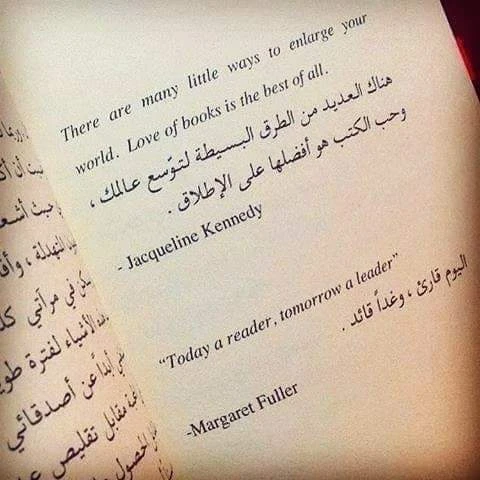 There are many little ways to enlarge your
world. Love of books is the best of all.
هناك العديد من الطرق البسيطة لتوسع عالمك ،
وحب الكتب هو أفضلها على الإطلاق .
- Jacqueline Kennedy
“Today a reader, tomorrow a leader”
اليوم قارئ ، وغداً قائد .
-Margaret Fuller
حيث أشع
التهدلة ، وأق
في مرآتي كل
الأشياء لفترة طو
أبداً عن أصدقائي
مقابل تقليص
الحصول